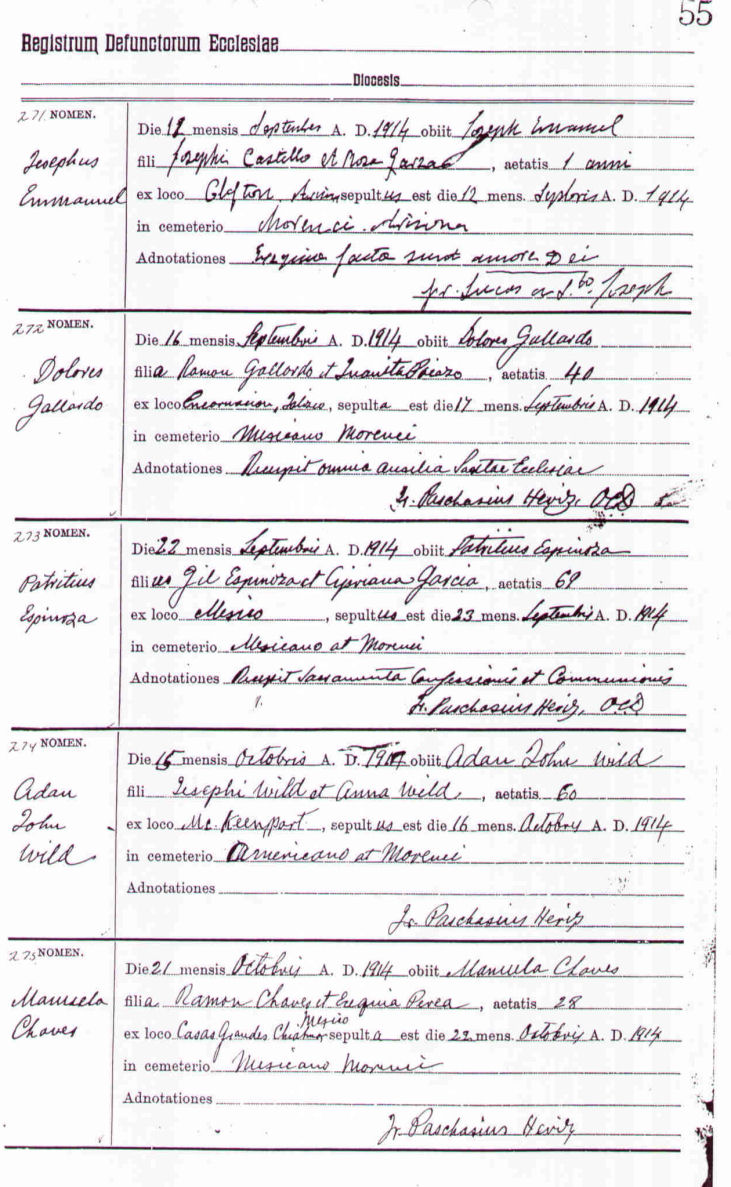 55
Registrum Defunctorum Ecclesiae
Diocesis
271. NOMEN.
Josephus
Emmanuel
Die 12 mensis Septembris A. D. 1914 obiit Joseph Emanuel
fili Josephi Castillo et Rosa Garza, aetatis 1 anni
ex loco Clifton, sepultus est die 12 mens. A. D. 1914
in cemeterio Morenci Arizona
Adnotationes facta sunt amore Dei
fr. Lucas a Sto Joseph
272 NOMEN.
Dolores
Gallardo
Die 16 mensis Septembris A. D. 1914 obiit Dolores Gallardo
filia Ramon Gallardo et Juanita, aetatis 40
ex loco Encarnacion, sepulta est die 17 mens. Septembris A. D. 1914
in cemeterio Mexicano Morenci
Adnotationes Recepit omnia auxilia Ecclesiae
Fr. Paschasius Heriz, OCD
273 NOMEN.
Patritius
Espinoza
Die 22 mensis Septembris A. D. 1914 obiit Patritius Espinoza
filius Gil Espinoza et Cipriana Garcia, aetatis 69
ex loco Mexico, sepultus est die 23 mens. Septembris A. D. 1914
in cemeterio Mexicano at Morenci
Adnotationes Recepit Sacramenta Confessionis et Communionis
Fr. Paschasius Heriz, OCD
274 NOMEN.
Adan
John
Wild
Die 15 mensis Octobris A. D. obiit Adan John Wild
fili Josephi Wild et Anna Wild, aetatis 60
ex loco Mc. Keenport, sepultus est die 16 mens. Octobris A. D. 1914
in cemeterio Americano at Morenci
Adnotationes
Fr. Paschasius Heriz
275 NOMEN.
Manuela
Chaves
Die 21 mensis Octobris A. D. 1914 obiit Manuela Chaves
filia Ramon Chaves et Perea, aetatis 28
Mexico
ex loco Casas Grandes sepulta est die 22 mens. Octobris A. D. 1914
in cemeterio Mexicano Morenci
Adnotationes
Fr. Paschasius Heriz